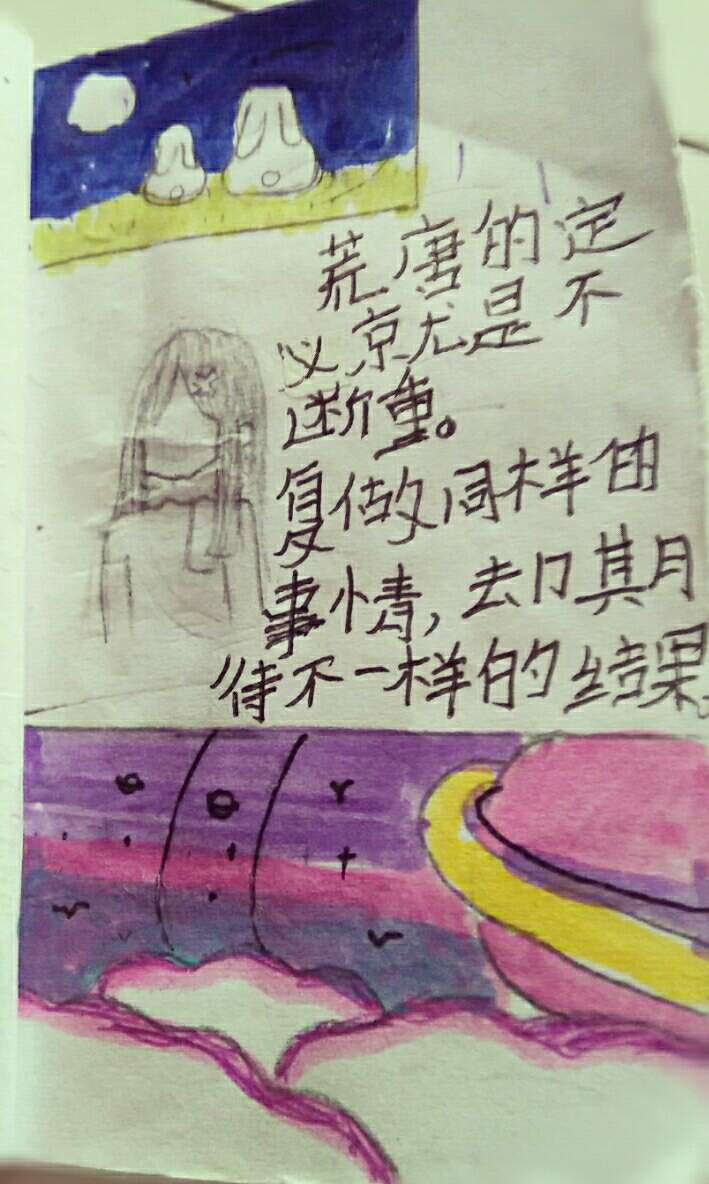 荒唐的定
义京尤是不
断重。
复做同样的
事情,去卩其月
待不一样的结果。